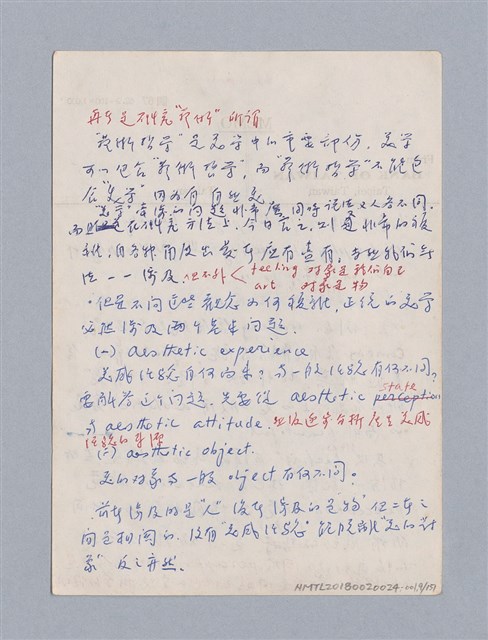 再者是研究"藝術"所謂
"藝術哲學"是美學中的重要部份。美學
可以包含"藝術哲學"，而"藝術哲學"不能包
含"美學"因為有自然美
"美學"牽涉的問題非常廣，同時說法又人各不同，
而且在研究方法上，今日言之，則更非常的複
雜，自各方面提出者應有盡有，
法一一涉及 但不外 feeling 對象是我們自己
art 對象是物
但是不問這些觀念如何複雜，正統的美學
必然涉及兩個基本問題。
(一) aesthetic experience
美感經驗自何而來？與一般經驗有何不同？
要解答這個問題，先要從 aesthetic perception state
與 aesthetic attitude. 並逐步分析產生美感
經驗的
(二) aesthetic object
美的對象與一般 object 有何不同。
前者涉及的是"人"後者涉及的是"物"但二者之
間是相關的，沒有"美感經驗"就脫離"美的"對
象"反之亦然。
HMTL20180020024-001,9/151